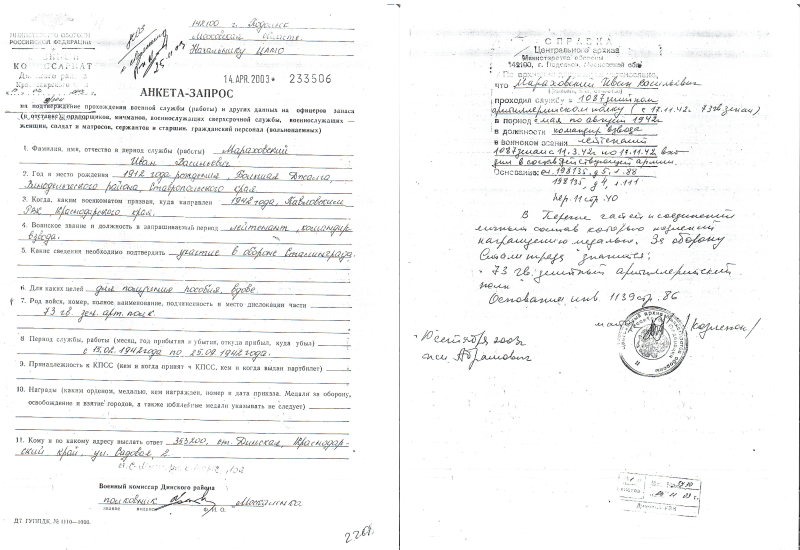 МИНИСТЕРСТВО ОБОРОНЫ
РОССИЙСКОЙ ФЕДЕРАЦИИ
КОМИССАРИАТ
142100 г. Подольск
Московской области
Начальнику ЦАМО
14.АПР.2003* 233506
АНКЕТА-ЗАПРОС
на подтверждение прохождения военной службы (работы) и других данных на офицеров запаса
(в отставке) прапорщиков, мичманов, военнослужащих сверхсрочной службы, военнослужащих —
женщин, солдат и матросов, сержантов и старшин, гражданский персонал (вольнонаемных)
1. Фамилия, имя, отчество и период службы (работы) Мараховский
Иван Васильевич
2. Год и место рождения 1912 года рождения, Большая Джалга,
района, Ставропольского края.
3. Когда, каким военкоматом призван, куда направлен 1942 года, Павловским
РВК, Краснодарского края.
4. Воинское звание и должность в запрашиваемый период лейтенант, командир
взвода.
5. Какие сведения необходимо подтвердить участие в обороне Сталинграда.
6. Для каких целей для получения пособия вдове
7. Род войск, номер, полное наименование, подчиненность и место дислокации части
73 гв. зен. арт. полк.
8 Период службы, работы (месяц, год прибытия и убытия, откуда прибыл, куда убыл)
с 15.02.1942 года по 25.08.1942 года.
9. Принадлежность к КПСС (кем и когда принят в КПСС, кем и когда выдан партбилет)
10. Награды (каким орденом, медалью, кем награжден, номер и дата приказа. Медали за оборону,
освобождение и взятие городов, а также юбилейные медали указывать не следует)
11. Кому и по какому адресу выслать ответ 353200, ст. Динская, Краснодар-
ский край, ул. Садовая, 2
Военный комиссар Динского района
полковник Москаленко
звание Ф.И.О.
ДТ ГУППДК, № 1110—1000.
СПРАВКА
Центрального архива
Министерства обороны
142100, г. Подольск, Московской обл.
что Мараховский Иван Васильевич
проходил службу в 1087 зенитном
артиллерийском полку (с 17.11.42 73 гв зенап)
в период с мая по август 1942г
в должности командир взвода
в воинском звании лейтенант
1087 зенап с 11.3.42 по 17.11.42 вхо-
дил в состав действующей армии.
Основание: оп. 198135, д. 5, л. 88
198135, д 4, л. 111
пер. 11 стр. 40
В Перечне частей и соединений
личный состав которых подлежит
награждению медалью "За оборону
Сталинграда" значится:
"73 гв. зенитный артиллерийский
полк"
Основание инв. 1139 стр. 86
10 сентября 2003г
исп. Абрамович